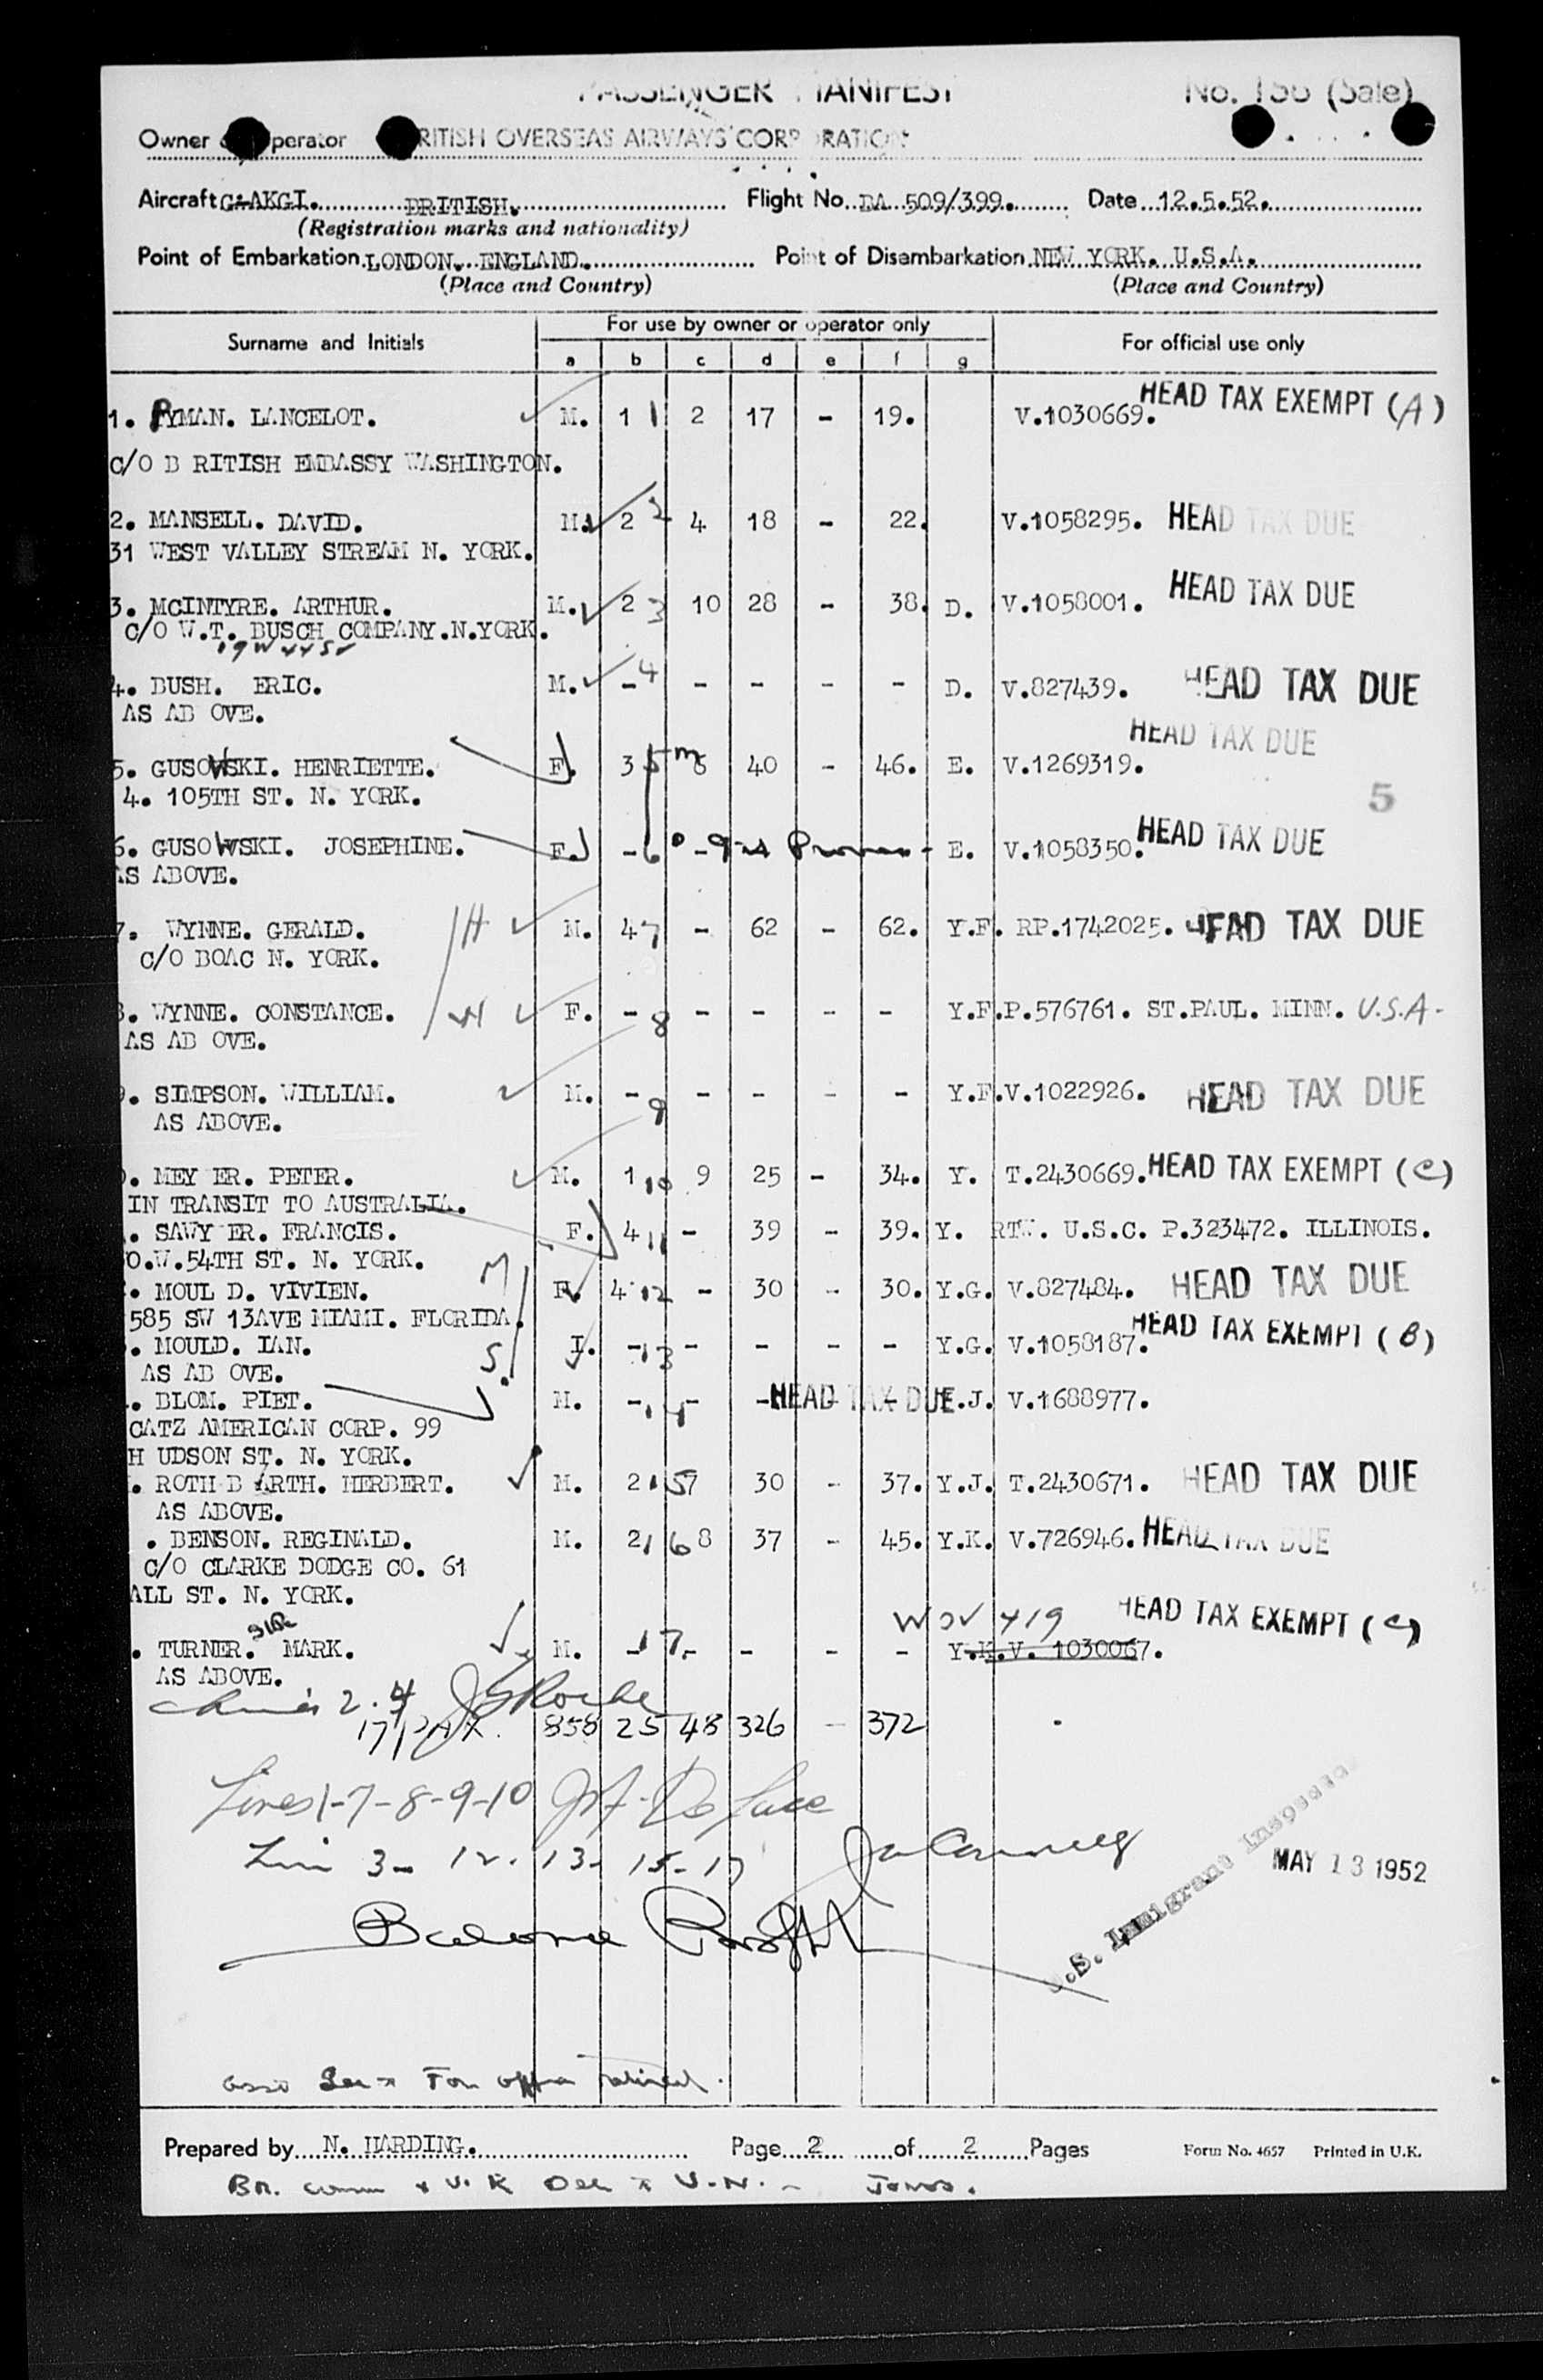 PASSENGER MANIFEST No. 156 (Sale)
Owner perator BRITISH OVERSEAS AIRWAYS CORPORATION
Aircraft G-AKGI. BRITISH. Flight No. BA 509/399. Date 12.5.52.
(Registration marks and nationality)
Point of Embarkation LONDON. ENGLAND. Point of Disembarkation NEW YORK. U.S.A.
(Place and Country) (Place and Country)
Surname and Initials For use by owner or operator only For official use only
a b c d e f g
1. PYMAN. LANCELOT. M. 1 1 2 17 - 19. V.1030669. HEAD TAX EXEMPT (A)
C/O B RITISH EMBASSY WASHINGTON.
2. MANSELL. DAVID. M. 2 2 4 18 - 22. V.1058295. HEAD TAX DUE
31 WEST VALLEY STREAM N. YORK.
3. MCINTYRE. ARTHUR. M. 2 3 10 28 - 38. D. V.1058001. HEAD TAX DUE
C/O W.T. BUSCH COMPANY.N.YORK.
4. BUSH. ERIC. M. - 4 - - - - D. V.827439. HEAD TAX DUE
AS AB OVE.
HEAD TAX DUE
5. GUSOWSKI. HENRIETTE. F. 3 5 6 40 - 46. E. V.1269319.
4. 105TH ST. N. YORK. 5
6. GUSOWSKI. JOSEPHINE. F. - 6 - - E. V.1058350. HEAD TAX DUE
AS ABOVE.
7. WYNNE. GERALD. M. 4 7 - 62 - 62. Y.F. RP.1742025. HEAD TAX DUE
C/O BOAC N. YORK.
8. WYNNE. CONSTANCE. F. - 8 - - - - Y.F.P.576761. ST.PAUL. MINN. U.S.A-
AS AB OVE.
9. SIMPSON. WILLIAM. M. - 9 - - - - Y.F.V.1022926. HEAD TAX DUE
AS ABOVE.
. MEY ER. PETER. M. 1 10 9 25 - 34. Y. T.2430669. HEAD TAX EXEMPT (C)
IN TRANSIT TO AUSTRALIA.
. SAWY ER. FRANCIS. F. 4 11 - 39 - 39. Y. RTW. U.S.C. P.323472. ILLINOIS.
O.W.54TH ST. N. YORK.
. MOUL D. VIVIEN. M F. 4 12 - 30 - 30. Y.G. V.827484. HEAD TAX DUE
585 SW 13AVE MIAMI. FLORIDA.
. MOULD. IAN. S. I. - 13 - - - - Y.G. V.1058187. HEAD TAX EXEMPT (B)
AS AB OVE.
. BLOM. PIET. M. - 14 - - HEAD TAX DUE .J. V.1688977.
CATZ AMERICAN CORP. 99
H UDSON ST. N. YORK.
. ROTH B ARTH. HERBERT. M. 2 15 7 30 - 37. Y.J. T.2430671. HEAD TAX DUE
AS ABOVE.
. BENSON. REGINALD. M. 2 16 8 37 - 45. Y.K. V.726946. HEAD TAX DUE
C/O CLARKE DODGE CO. 61
ALL ST. N. YORK.
419 HEAD TAX EXEMPT (C)
. TURNER. MARK. M. - 17 - - - - Y.K.V. 1030067.
AS ABOVE.
17 PAX. 858 25 48 326 - 372
Lines 1-7-8-9-10
3- 12. 13- 15- 17
U.S. Immigrant Inspector
MAY 13 1952
Prepared by N. HARDING. Page 2 of 2 Pages Form No. 4657 Printed in U.K.